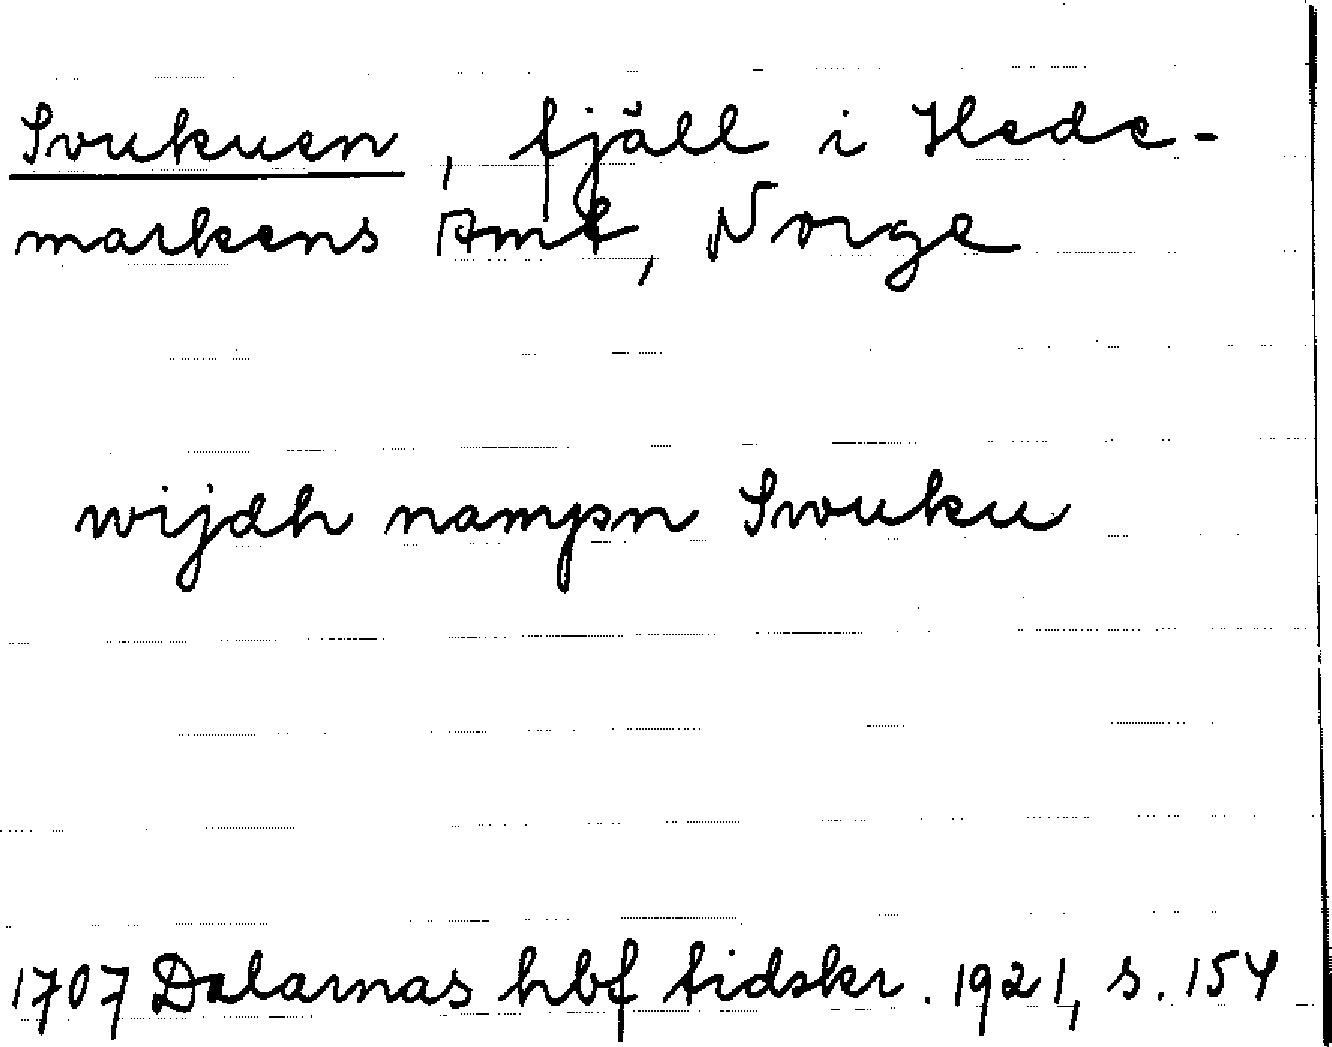 Svukuen, fjäll i Hede-
markens Amt, Norge
wijdh nampn Swuku
1707 Dalarnas hbf tidskr. 1921, s. 154